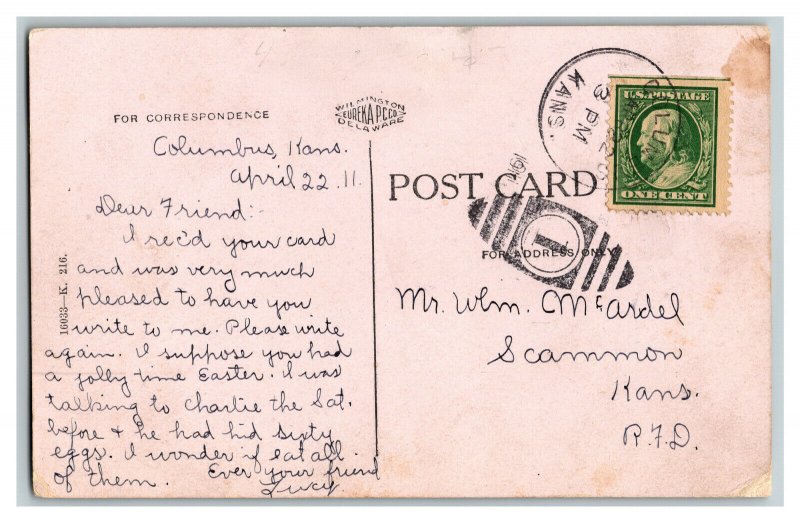 FOR CORRESPONDENCE
WILMINGTON
EUREKA P.C.CO.
DELAWARE
Columbus, Kans.
April 22. 11.
Dear Friend:-
I rec'd your card
and was very much
pleased to have you
write to me. Please write
again. I suppose you had
a jolly time Easter. I was
talking to Charlie the Sat.
before & he had hid sixty
eggs. I wonder if eat all
of them. Ever your friend
Lucy
16033—K. 216.
POST CARD
FOR ADDRESS ONLY
KANS.
3 PM
1911
1
U.S. POSTAGE
ONE CENT
Mr. Wlm. McArdel
Scammon
Kans.
R.F.D.